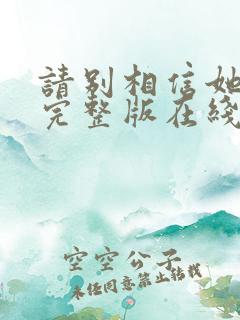 請別相信她
完整版在綫
空空公子
未經同意禁止轉載